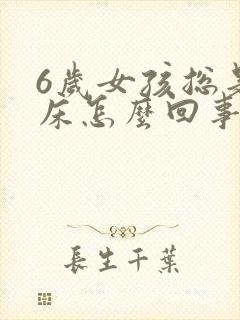 6歲女孩總是
床怎麼回事
長生千葉